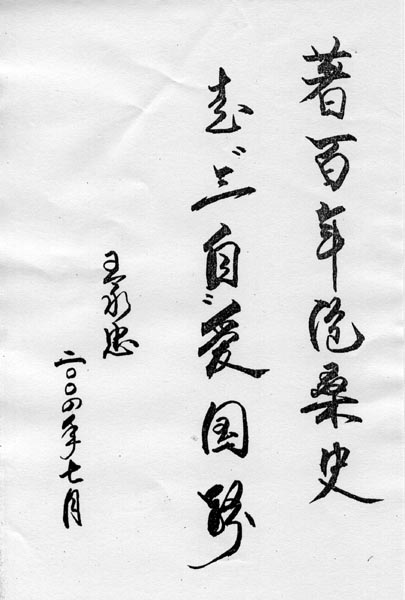 著百年沧桑史
走“三自”爱国路
王永忠
二〇〇四年七月